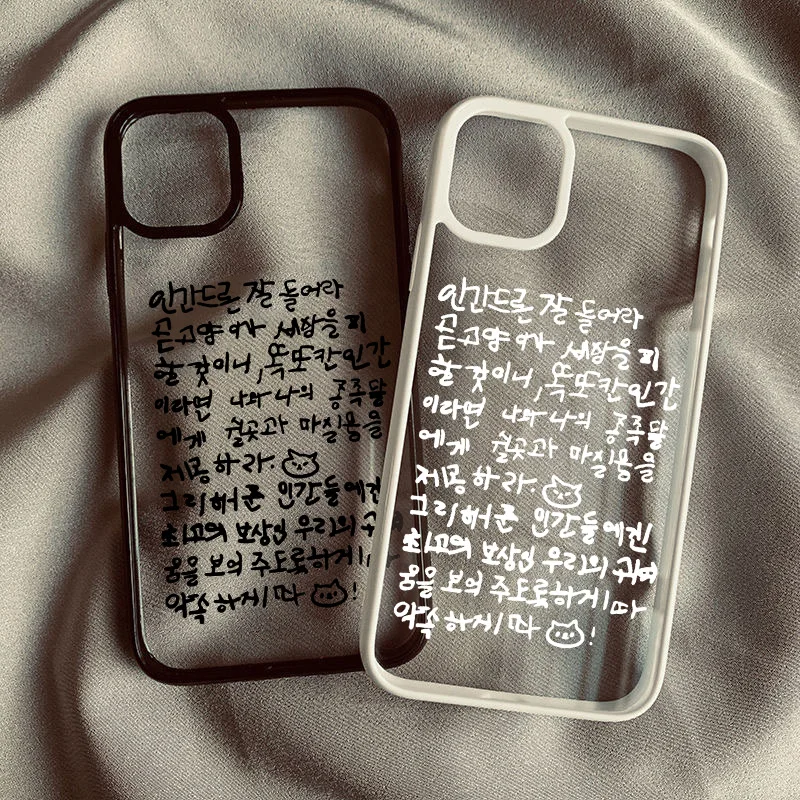 인간드른 잘 들어라
귿 고양 이가 세장을 피
할 갖이니, 똑또칸 인간
이라면 나와 나의 종족들
에게 쉴곳과 마실몽을
제공하라.
그리하여 군 인간들에겐
최고의 보상인 우리의 귀여
움을 보의 주도록하게/따
약속하게/따 !
인간드른 잘 들어라
귿 고양 이가 세장을 피
할 갖이니, 똑또칸 인간
이라면 나와 나의 종족들
에게 쉴곳과 마실몽을
제공하라.
그리하여 군 인간들에겐
최고의 보상인 우리의 귀여
움을 보의 주도록하게/따
약속하게/따 !